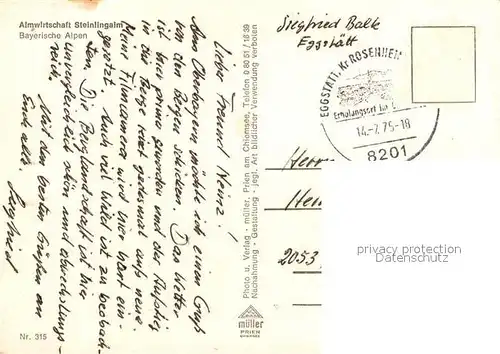 Almwirtschaft Steinlingalm
Bayerische Alpen
Lieber Freund Heinz!
Aus Oberbayern möchte ich einen Gruß
von den Bergen schicken. Das Wetter
ist hier prima geworden und der Aufstieg
in die Berge reizt jedesmal aufs neue.
Meine Filmcamera wird hier hart ein-
gesetzt. Auch viel Wild ist zu beobach-
ten. Die Berglandschaft ist hier
unvergleichlich schön und abwechslungs-
reich.
Mit den besten Grüßen an
Euch alle.
Siegfried
Nr. 315
Photo u. Verlag - müller, Prien am Chiemsee, Telefon 0 80 51 / 16 39
Nachahmung - Gestaltung - jegl. Art bildlicher Verwendung verboten
müller
PRIEN
CHIEMSEE
Siegfried Balk
Eggstätt
EGGSTÄTT, Kr ROSENHEIM
Erholungsort im
14.-7.75-18
8201
Herrn
2053
privacy protection
Datenschutz